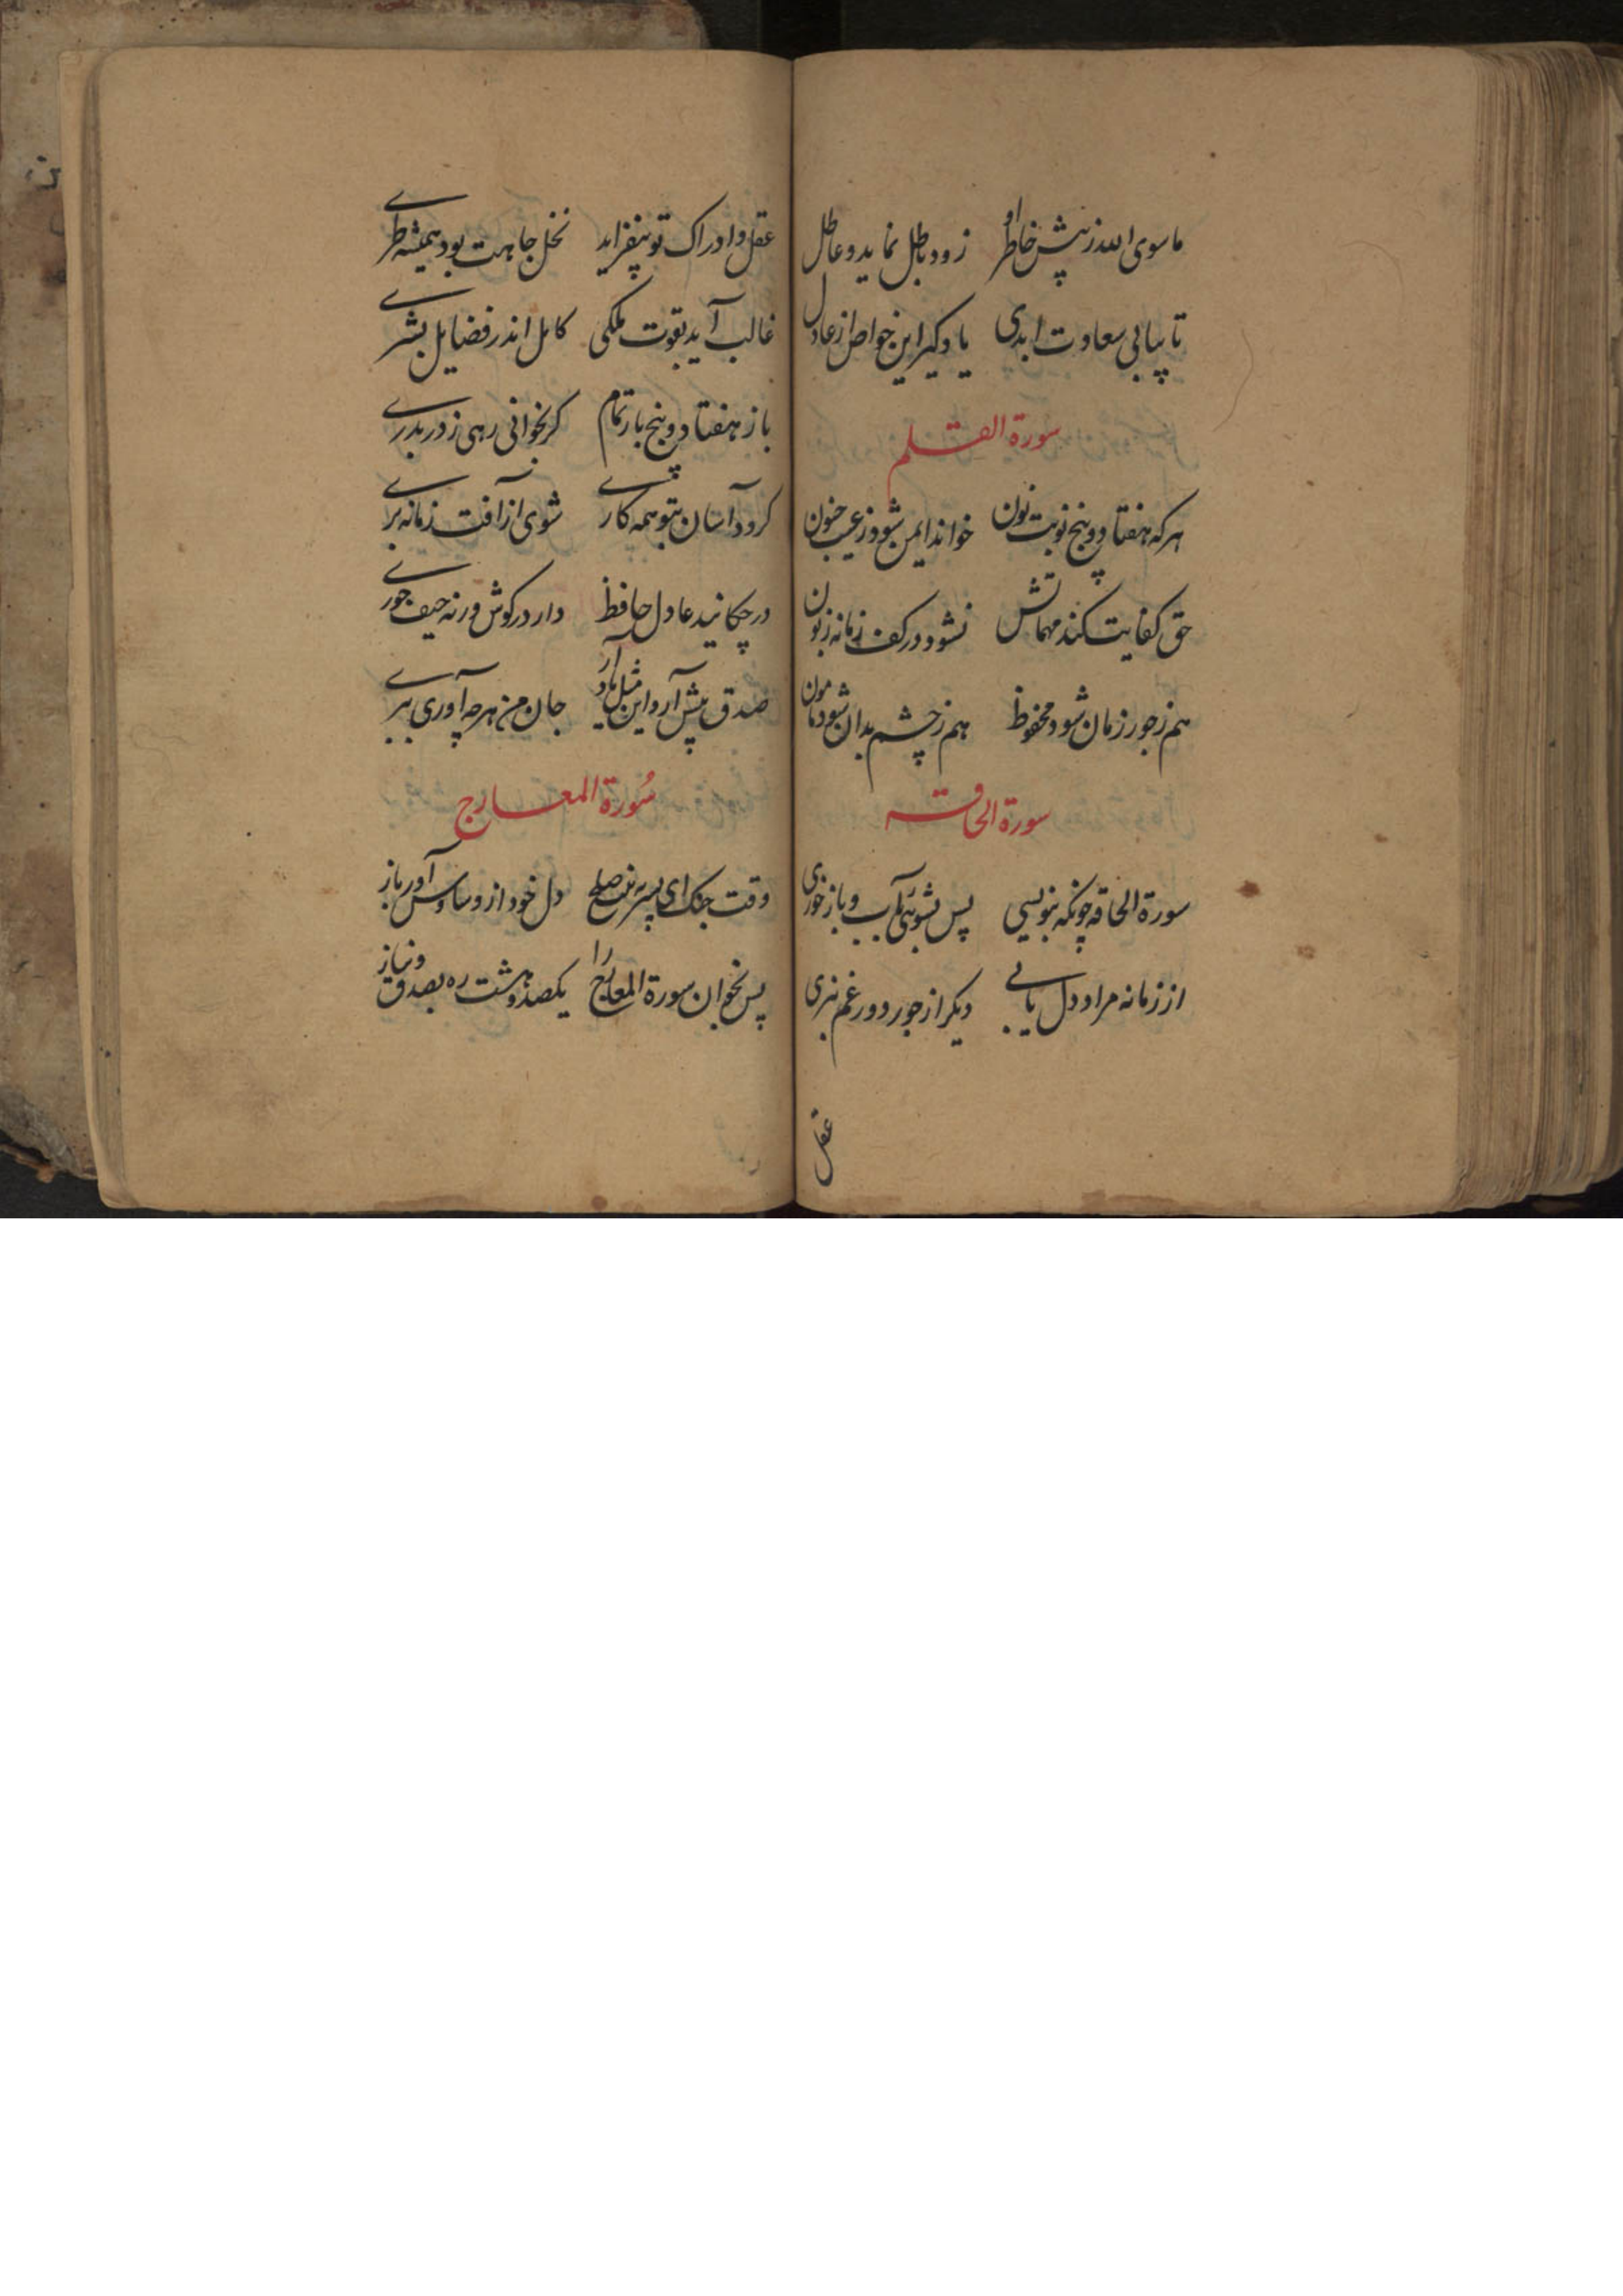 ماسوی الله ز پیش خاطر او زود باطل نماید و عاطل
تا بیابی سعادت ابدی یاد گیر این خواص از عادل
سورة القلم
هر که هفتاد و پنج نوبت نون خواند ایمن شود ز عیب جنون
حق کفایت کند مهماتش نشود در کف زمانه زبون
هم ز جور زمان شود محفوظ هم ز چشم بدان شود مامون
سورة الحاقه
سورة الحاقه چونکه بنویسی پس بشوئی بآب و باز خوری
از زمانه مراد دل یابی دیگر از جور دور غم نبری
عقل
عقل و ادراک تو بیفزاید نخل جاهت بود همیشه طری
غالب آید بقوت ملکی کامل اندر فضایل بشری
باز هفتاد و پنج بار تمام کر بخوانی رهی ز دربدری
کردد آسان بتو همه کاری شوی از آفت زمانه بری
در چکانید عادل حافظ دار در کوش ورنه حیف خوری
صدق پیش آر و این مثل یاد آر جان من هر چه آوری ببری
سُورة المعارج
وقت جنک ای پسر نه صلح دل خود از وساوس آور باز
پس بخوان سورة المعارج را یکصد و هشت ره بصدق و نیاز